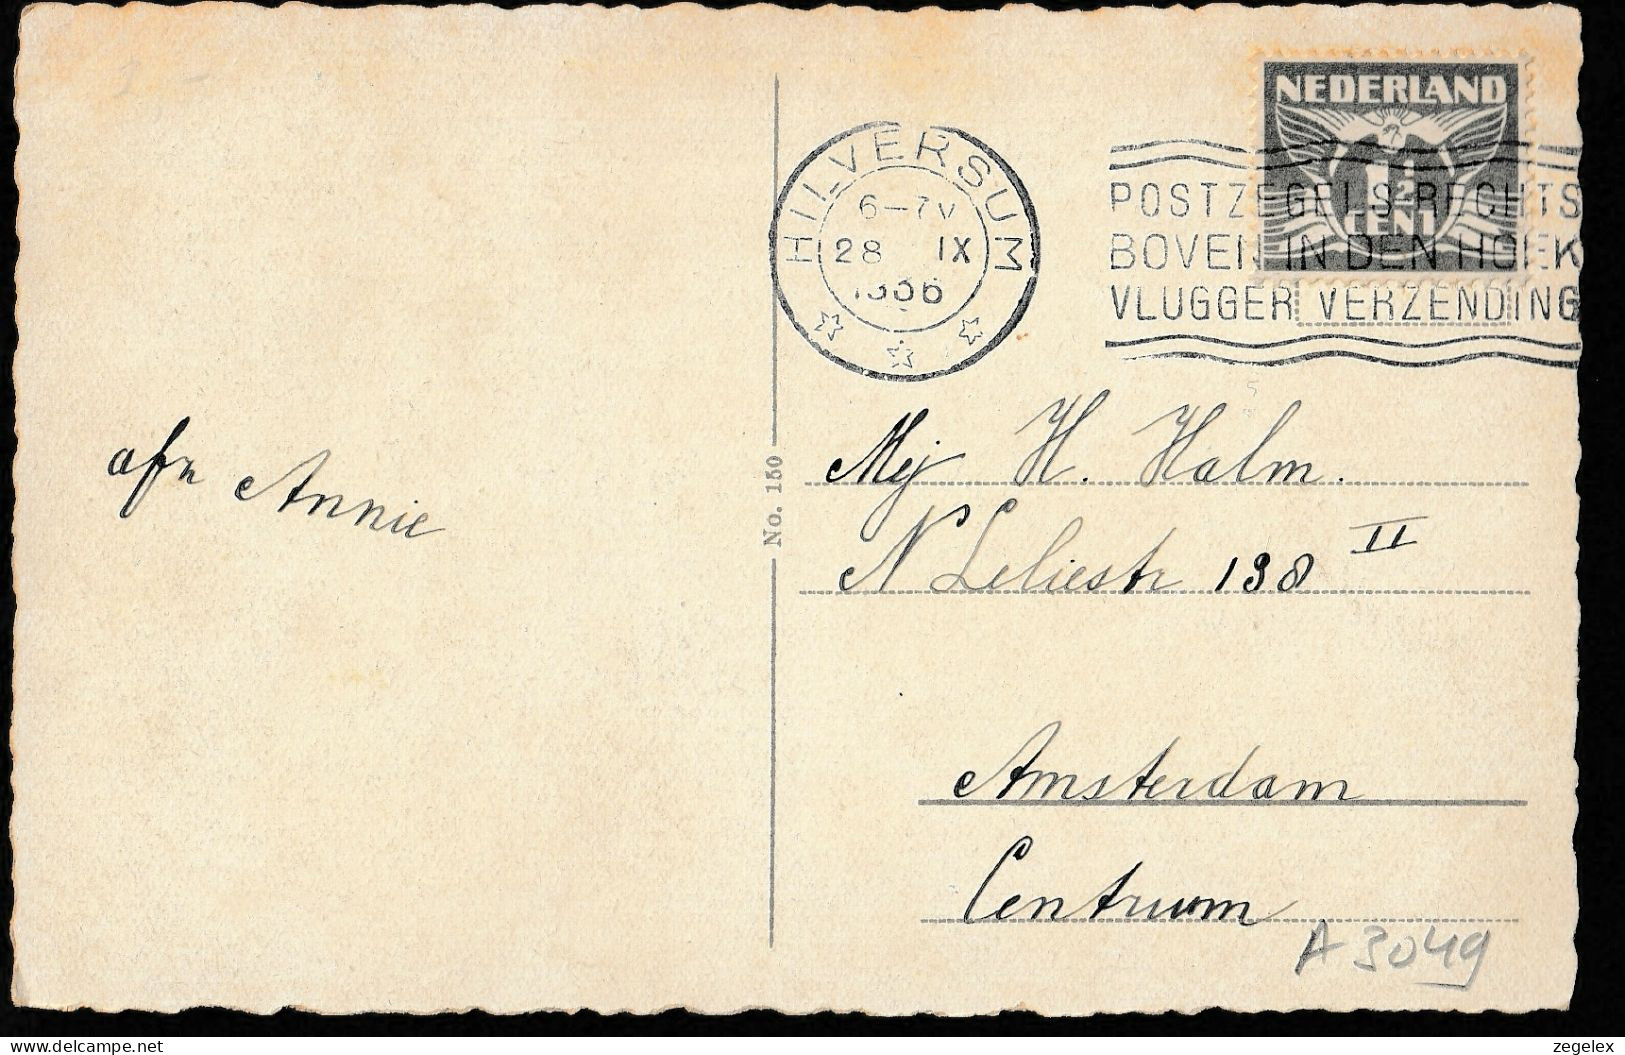 NEDERLAND
1½
CENT
HILVERSUM
6-7V
28 IX
1936
POSTZEGELS RECHTS
BOVEN IN DEN HOEK
VLUGGER VERZENDING
afz Annie
No. 150
Mej H. Halm.
N Leliestr 198 II
Amsterdam
Centrum
A 3049
delcampe.net
zegelex